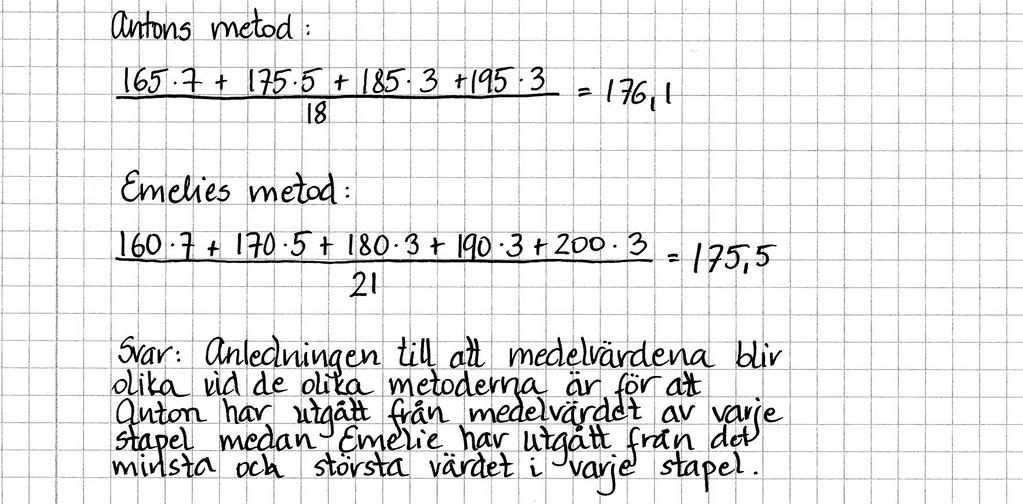 Antons metod:
165·7 + 175·5 + 185·3 +195·3
18
= 176,1
Emelies metod:
160·7 + 170·5 + 180·3 + 190·3 + 200·3
21
= 175,5
Svar: Anledningen till att medelvärdena blir
olika vid de olika metoderna är för att
Anton har utgått från medelvärdet av varje
stapel medan Emelie har utgått från det
minsta och största värdet i varje stapel.